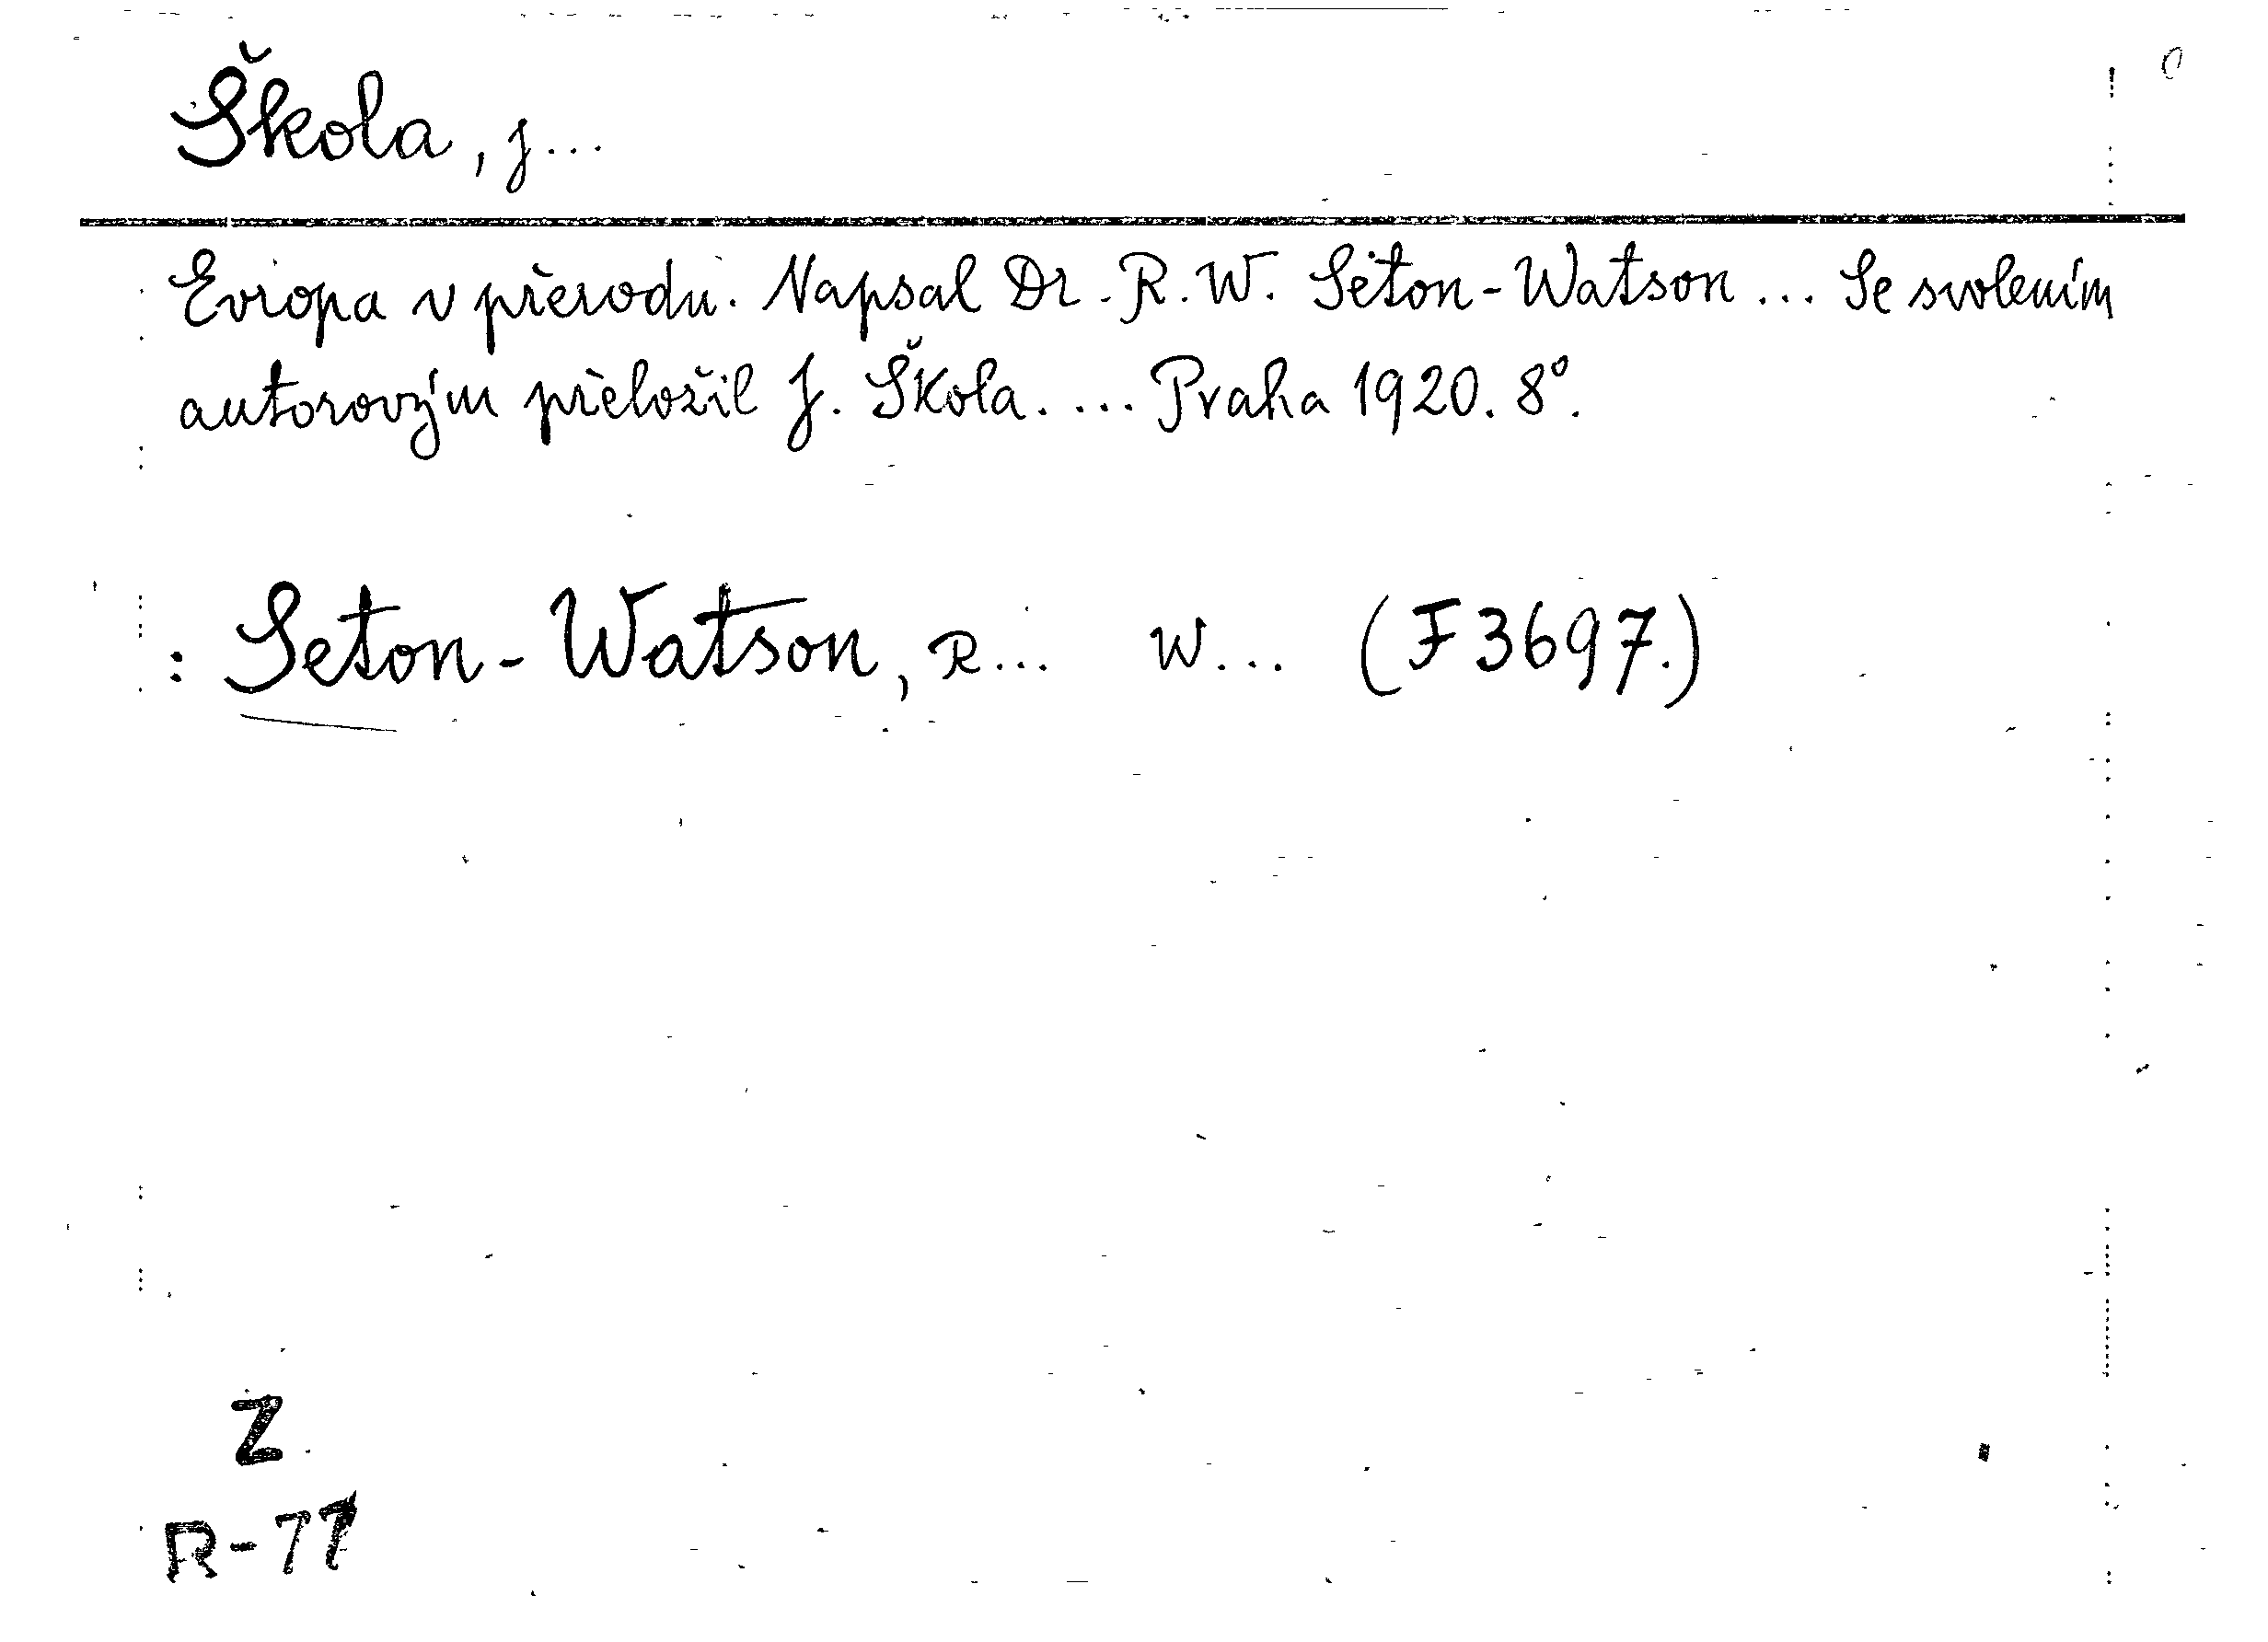 Škola, J...
Evropa v přerodu. Napsal Dr. R. W. Seton-Watson ... Se svolením
autorovým přeložil J. Škola. ... Praha 1920. 8°.
: Seton-Watson, R... W... (F 3697.)
Z
R-77